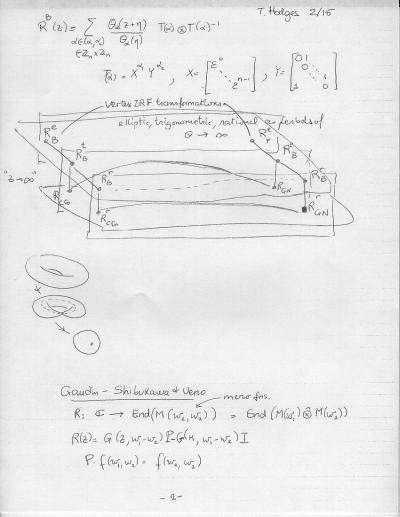 T. Hodges 2/15
R^B(z) = Σ θ_α(z+η) / θ_α(η) T(α) ⊗ T(α)^{-1}
α=(α₁,α₂)
∈ Z_n × Z_n
T(α) = X^{α₁} Y^{α₂} , X = [ε⁰ ⋱ ε^{n-1}] , Y = [0 1 0 ⋱ 1 0]
vertex IRF transformations
elliptic, trigonometric, rational
θ → ∞
R_B^e R_B^t R_B^r R_B^t R_B^r
"z→∞"
R_CG R_CG^r R_GN R_GN^r
Gaudin - Shibukawa + Ueno
mero fns.
R: ℂ → End(M(w₁, w₂)) = End(M(w₁) ⊗̂ M(w₂))
R(z) = G(z, w₁-w₂) P - G(κ, w₁-w₂) I
P·f(w₁, w₂) = f(w₂, w₁)
-2-